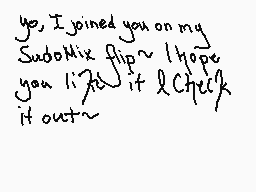 yo, I joined you on my
SudoMix flip~ I hope
you like it & Check
it out~